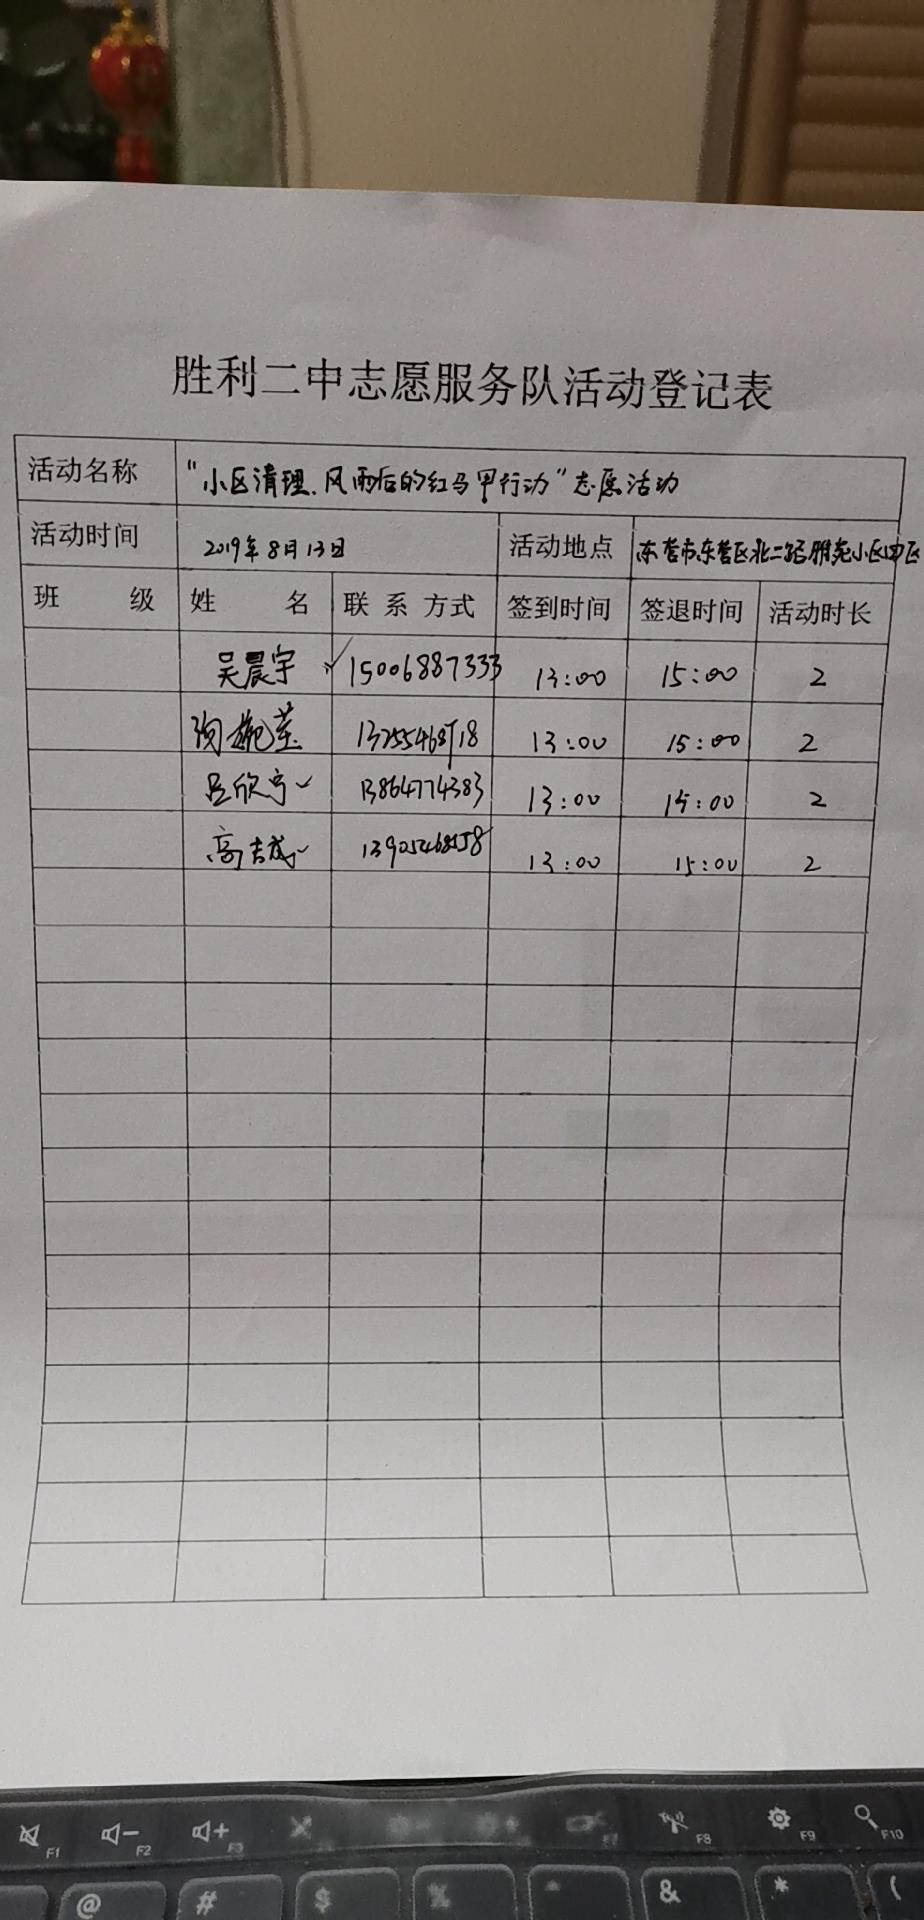 胜利二中志愿服务队活动登记表
活动名称 "小区清理.风雨后的红马甲行动"志愿活动
活动时间 2019年8月13日 活动地点 东营市东营区北二路雅苑小区四区
班 级 姓 名 联 系 方式 签到时间 签退时间 活动时长
吴晨宇 15006887333 13:00 15:00 2
13:00 15:00 2
吕欣宁 13864774383 13:00 15:00 2
高吉成 13:00 15:00 2
F1 F2 F3 F7 F8 F9 F10
@ # $ % ^ & * (